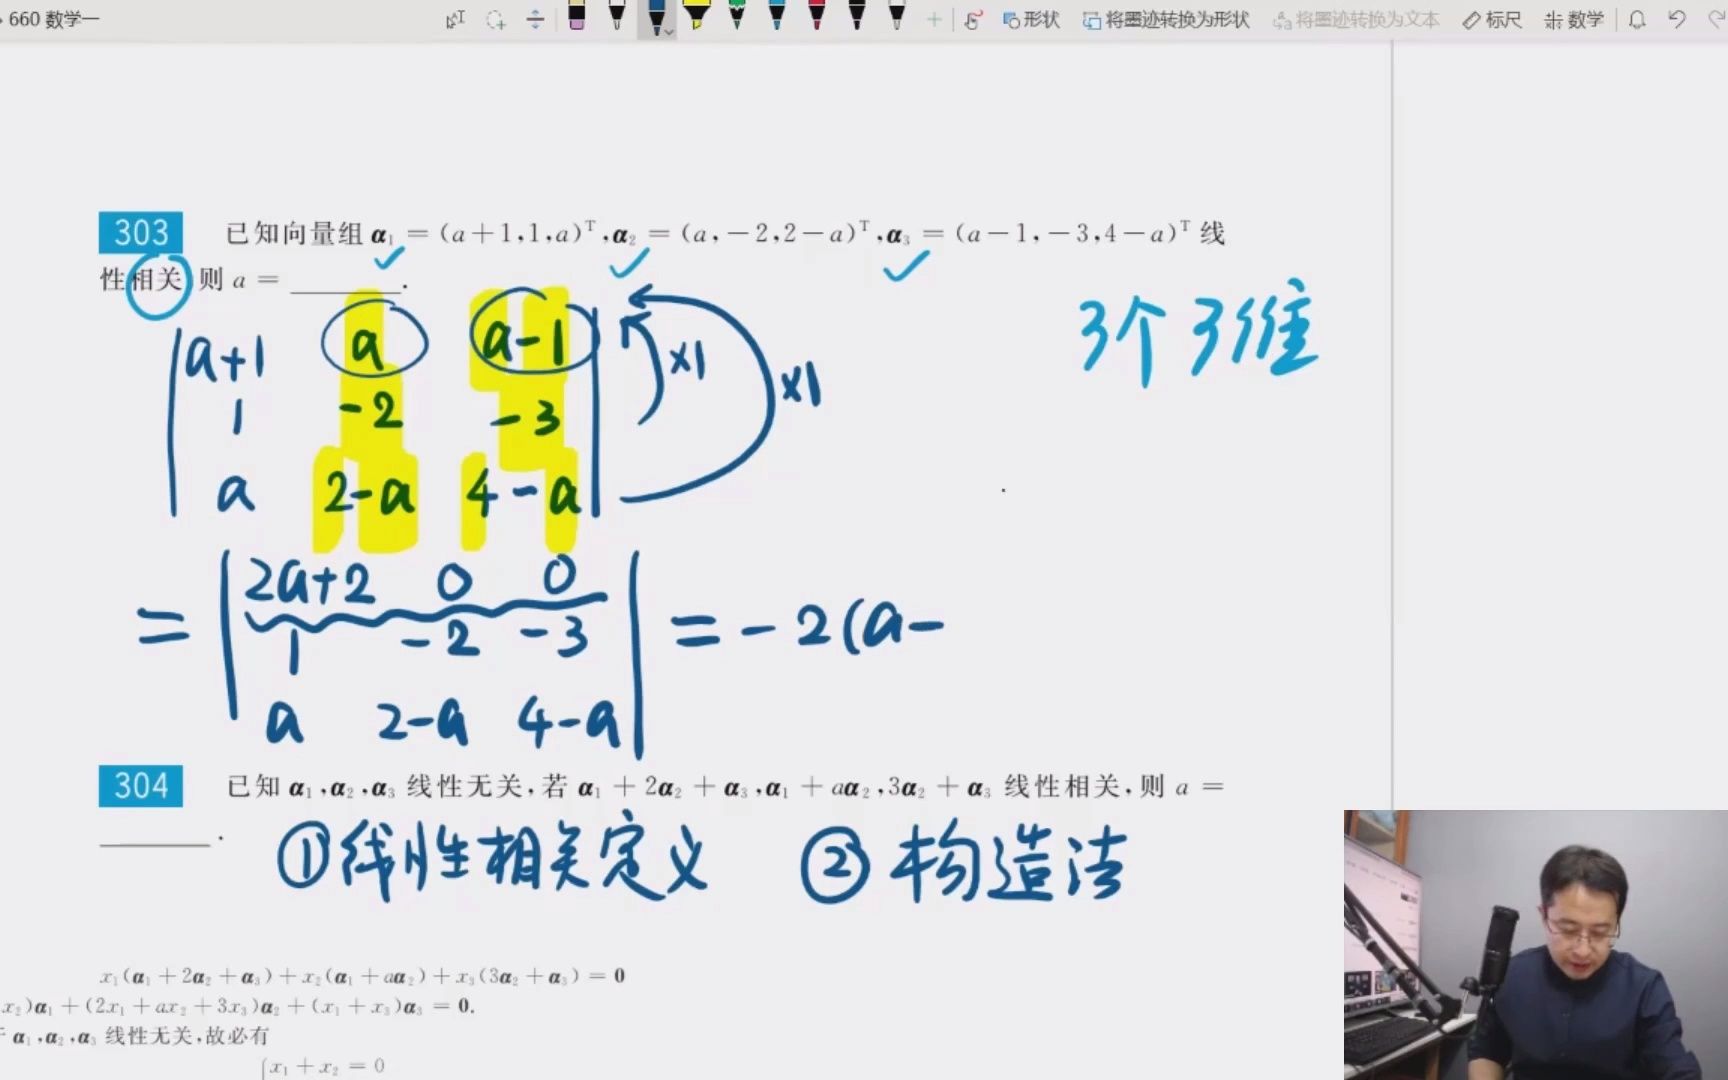 660 数学一
形状 将墨迹转换为形状 将墨迹转换为文本 标尺 数学
303 已知向量组 α₁ = (a+1,1,a)ᵀ,α₂ = (a,−2,2−a)ᵀ,α₃ = (a−1,−3,4−a)ᵀ 线
性相关,则 a = ________.
3个3维
a+1 a a-1
×1 ×1
1 -2 -3
a 2-a 4-a
2a+2 0 0
= 1 -2 -3 = -2(a-
a 2-a 4-a
304 已知 α₁,α₂,α₃ 线性无关,若 α₁ + 2α₂ + α₃,α₁ + aα₂,3α₂ + α₃ 线性相关,则 a =
________.
①线性相关定义 ②构造法
x₁(α₁ + 2α₂ + α₃) + x₂(α₁ + aα₂) + x₃(3α₂ + α₃) = 0
x₂)α₁ + (2x₁ + ax₂ + 3x₃)α₂ + (x₁ + x₃)α₃ = 0.
α₁,α₂,α₃ 线性无关,故必有
x₁ + x₂ = 0